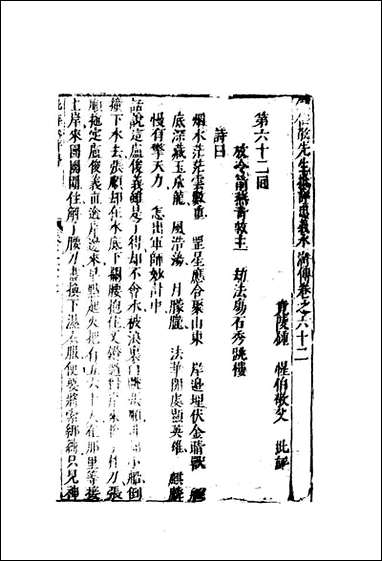 鍾伯敬先生批評忠義水滸傳卷之六十二
竟陵鍾 惺伯敬父 批評
第六十二回
放冷箭燕青救主 劫法場石秀跳樓
詩曰
烟水茫茫雲數重 罡星應合聚山東 岸邊埋伏金睛獸
底深藏玉爪龍 風浩蕩 月朦朧 法華開處顯英雄 麒麟
慢有擎天力 怎出軍師妙計中
話說這盧俊義雖是了得却不會水被浪裏白 張順 小船倒
撞下水去張順却在水底下 腰抱住又 過對岸來 刀張
順拖定盧俊義直 岸邊來早點起火把有五六十人在那里等接
上岸來團團圍住解了腰刀盡換下濕衣服便要將索綁縛只見神